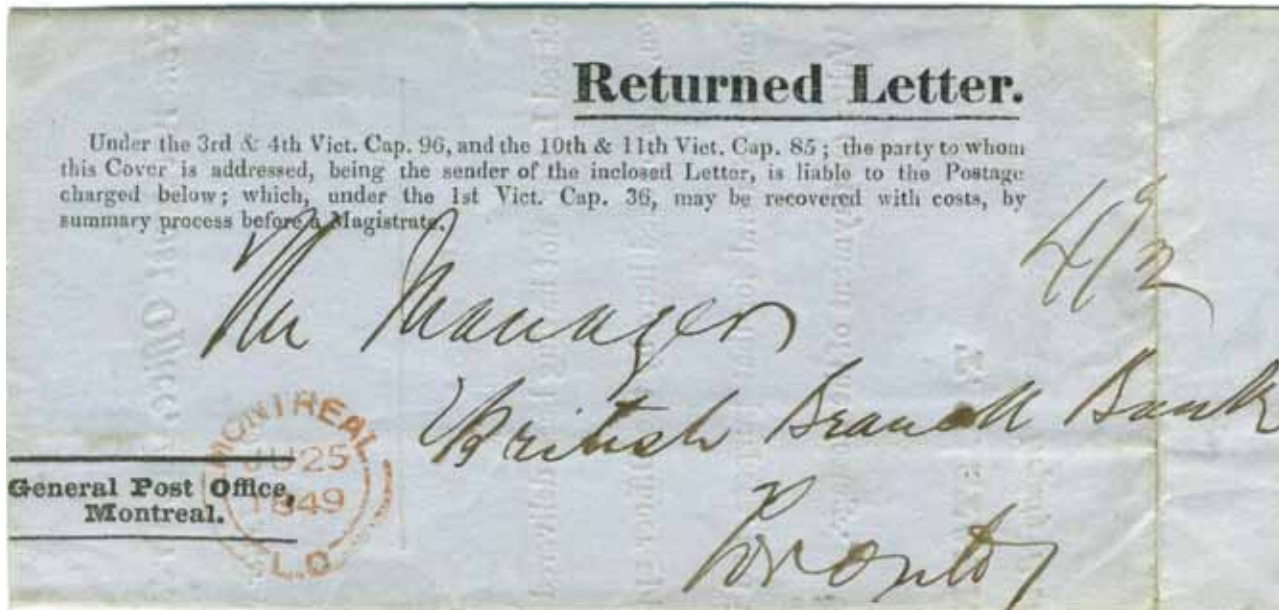 Returned Letter.
Under the 3rd & 4th Vict. Cap. 96, and the 10th & 11th Vict. Cap. 85; the party to whom
this Cover is addressed, being the sender of the inclosed Letter, is liable to the Postage
charged below; which, under the 1st Vict. Cap. 36, may be recovered with costs, by
summary process before a Magistrate.
The Manager
British Branch Bank
Toronto
MONTREAL
JU 25
1849
L.O
General Post Office,
Montreal.